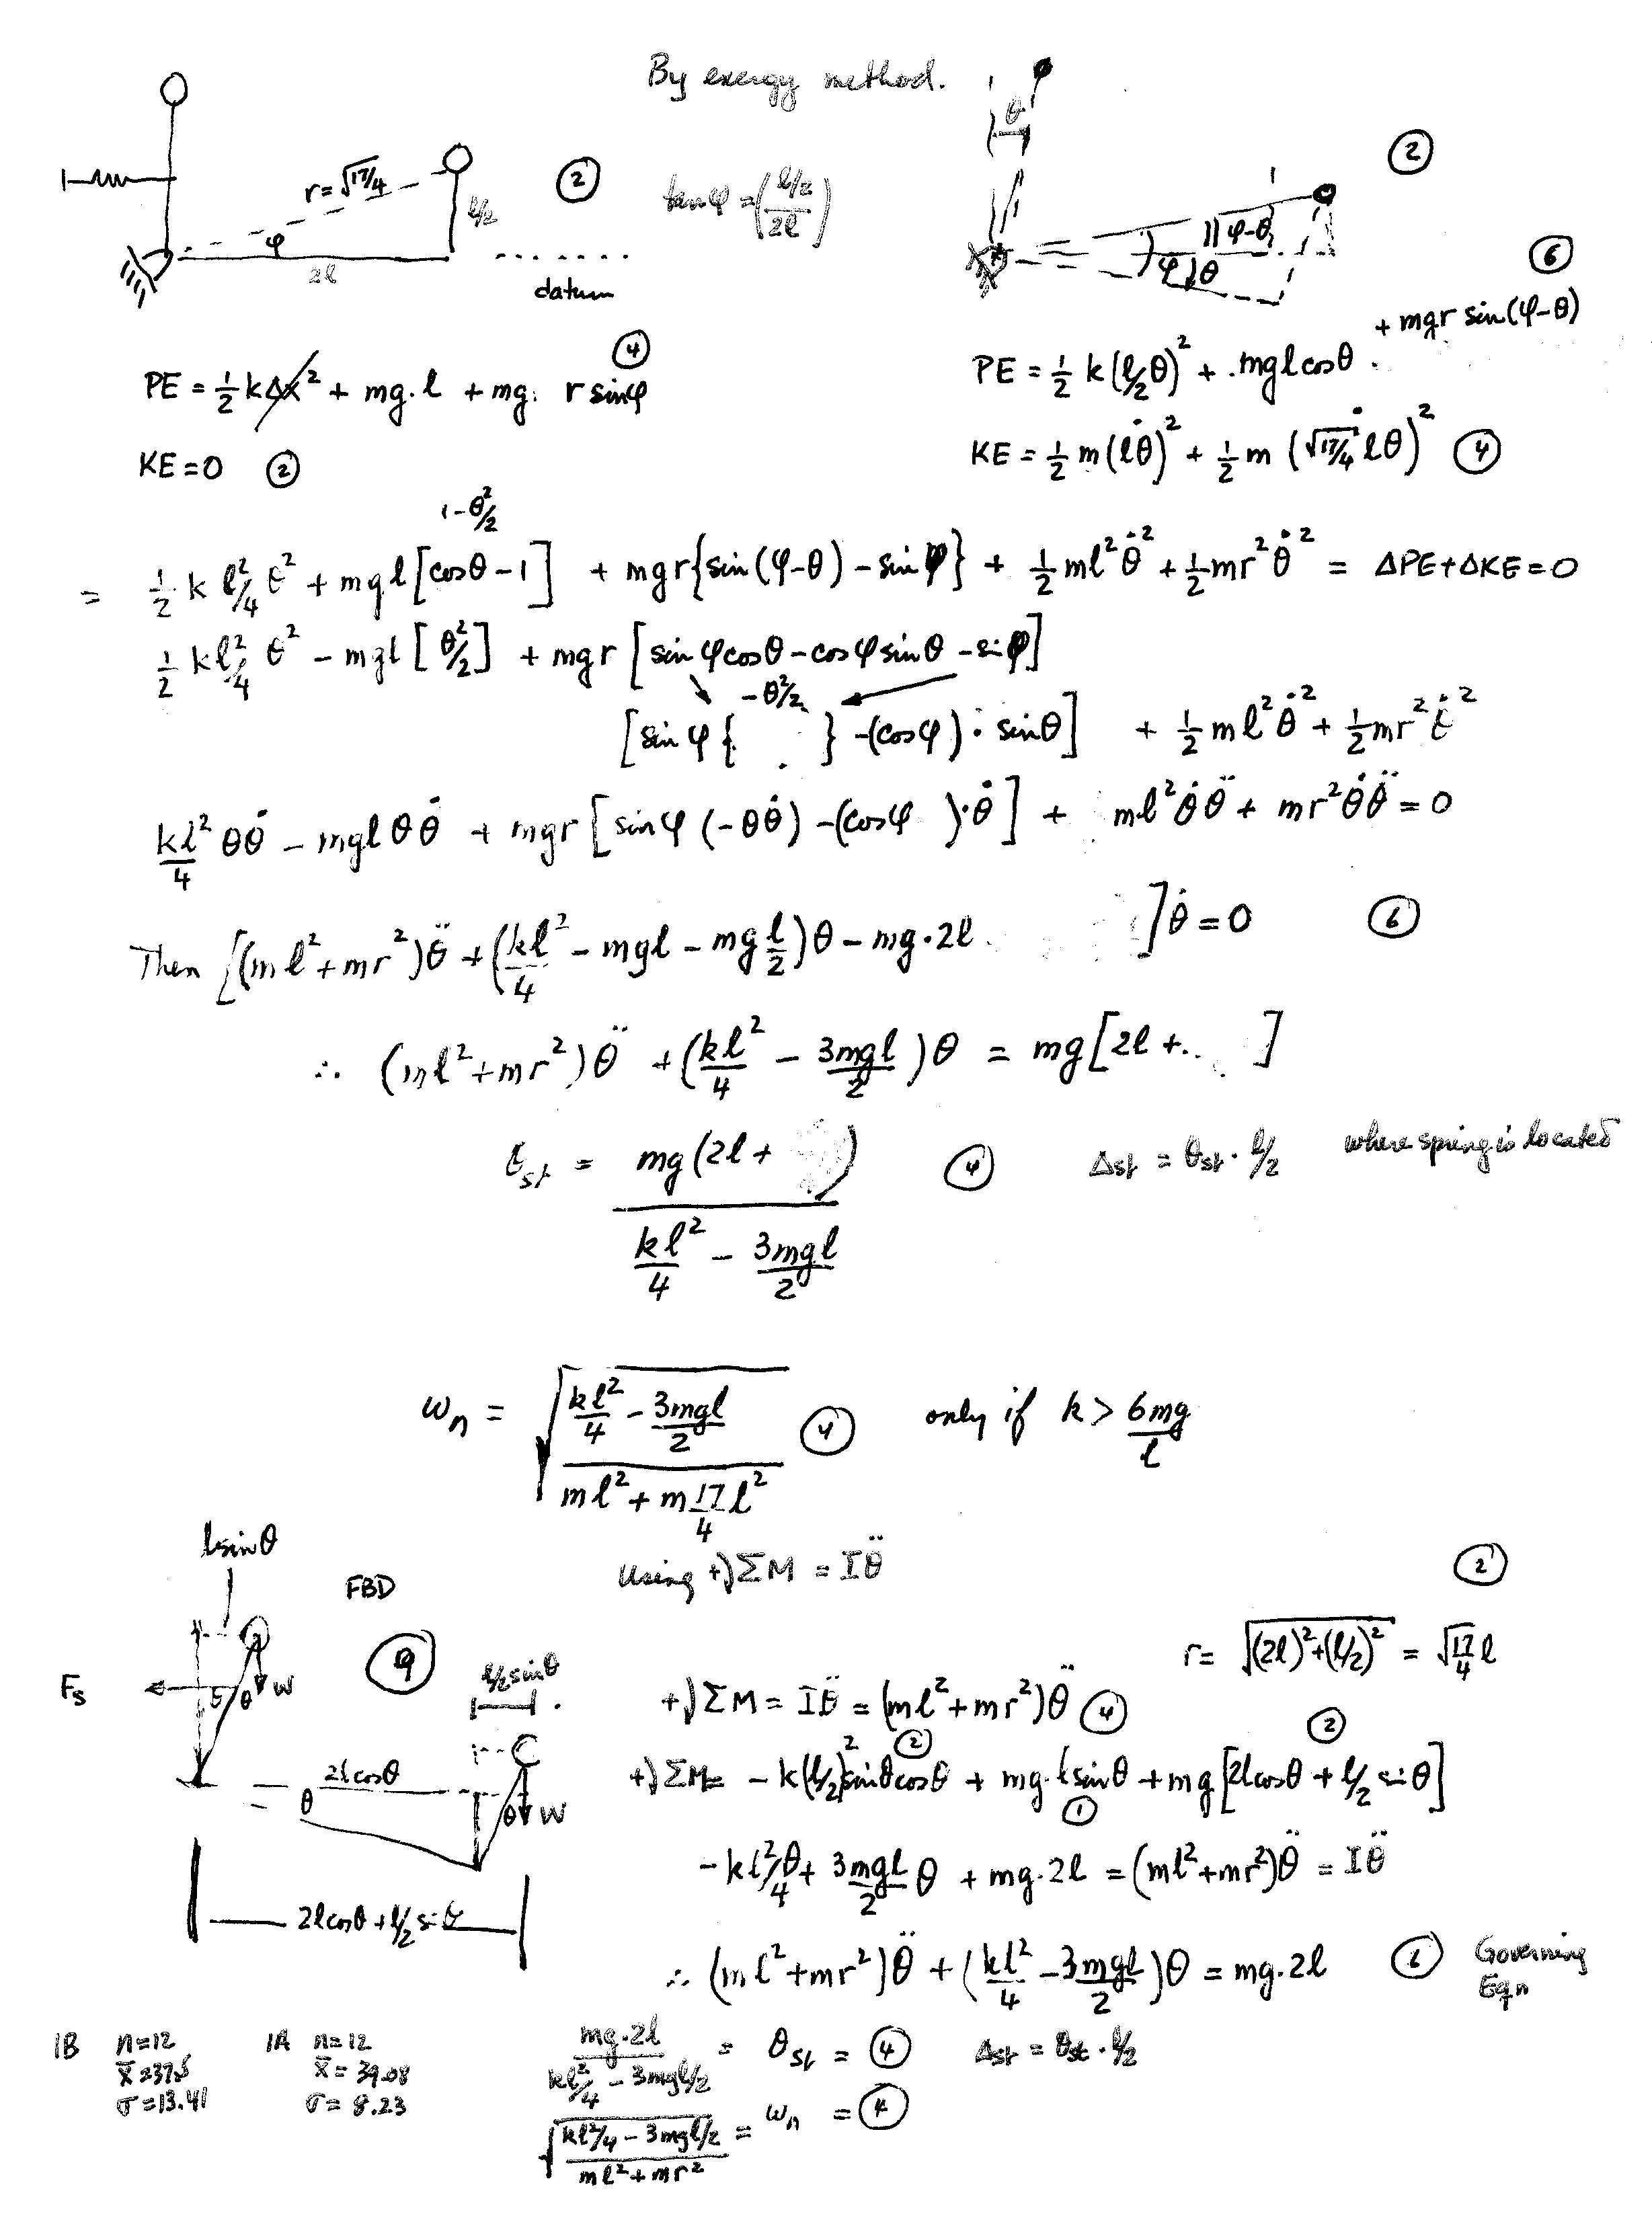 By energy method.
r=√17/4
φ
l/2
2l
datum
②
tanφ = (l/2 / 2l)
θ
②
φ-θ
φ θ
⑥
④
PE = ½ kΔx² + mg·l + mg· r sinφ
KE = 0 ②
PE = ½ k(l/2 θ)² + mgl cosθ + mgr sin(φ-θ)
KE = ½ m(lθ̇)² + ½ m(√17/4 lθ̇)² ④
1-θ²/2
= ½ k l²/4 θ² + mgl[cosθ-1] + mgr{sin(φ-θ) - sinφ} + ½ml²θ̇² + ½mr²θ̇² = ΔPE+ΔKE=0
½ kl²/4 θ² - mgl[θ²/2] + mgr[sinφcosθ - cosφsinθ - sinφ]
-θ²/2
[sinφ{ } -(cosφ)·sinθ] + ½ml²θ̇² + ½mr²θ̇²
kl²/4 θθ̇ - mglθθ̇ + mgr[sinφ(-θθ̇) - (cosφ)·θ̇] + ml²θ̇θ̈ + mr²θ̇θ̈ = 0
Then [(ml²+mr²)θ̈ + (kl²/4 - mgl - mg l/2)θ - mg·2l ]θ̇ = 0 ⑥
∴ (ml²+mr²)θ̈ + (kl²/4 - 3mgl/2)θ = mg[2l+.. ]
θst = mg(2l+ ) / (kl²/4 - 3mgl/2) ④ Δst = θst· l/2 where spring is located
ωn = √((kl²/4 - 3mgl/2) / (ml²+m 17/4 l²)) ④ only if k > 6mg/l
lsinθ
FBD
Using +)ΣM = Iθ̈
②
⑨
Fs
θ
W
l/2 sinθ
r = √((2l)²+(l/2)²) = √17/4 l
+)ΣM = Iθ̈ = (ml²+mr²)θ̈ ④
② ②
2lcosθ
θ
θ W
+)ΣM= -k(l/2)²sinθcosθ + mg·lsinθ + mg[2lcosθ + l/2 sinθ]
①
-kl²/4 θ + 3mgl/2 θ + mg·2l = (ml²+mr²)θ̈ = Iθ̈
2lcosθ + l/2 sinθ
∴ (ml²+mr²)θ̈ + (kl²/4 - 3mgl/2)θ = mg·2l ⑥ Governing Eqn
1B n=12
x̄=37.5
σ=13.41
1A n=12
x̄=39.08
σ=8.23
mg·2l / (kl²/4 - 3mgl/2) = θst = ④ Δst = θst·l/2
√((kl²/4 - 3mgl/2) / (ml²+mr²)) = ωn = ④